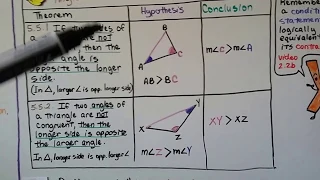 Theorem
Hypothesis
Conclusion
5.5.1 If two sides of
a are not
then the
angle is
opposite the longer
side.
(In △, larger ∠ is opp. longer side)
B
A
C
AB > BC
m∠C > m∠A
5.5.2 If two angles of
a triangle are not
congruent, then the
longer side is opposite
the larger angle.
(In △, longer side is opp. larger ∠)
X
Y
Z
m∠Z > m∠Y
XY > XZ
Remember
a condi
statement
logically
equivalent
its contra
video
2.2b